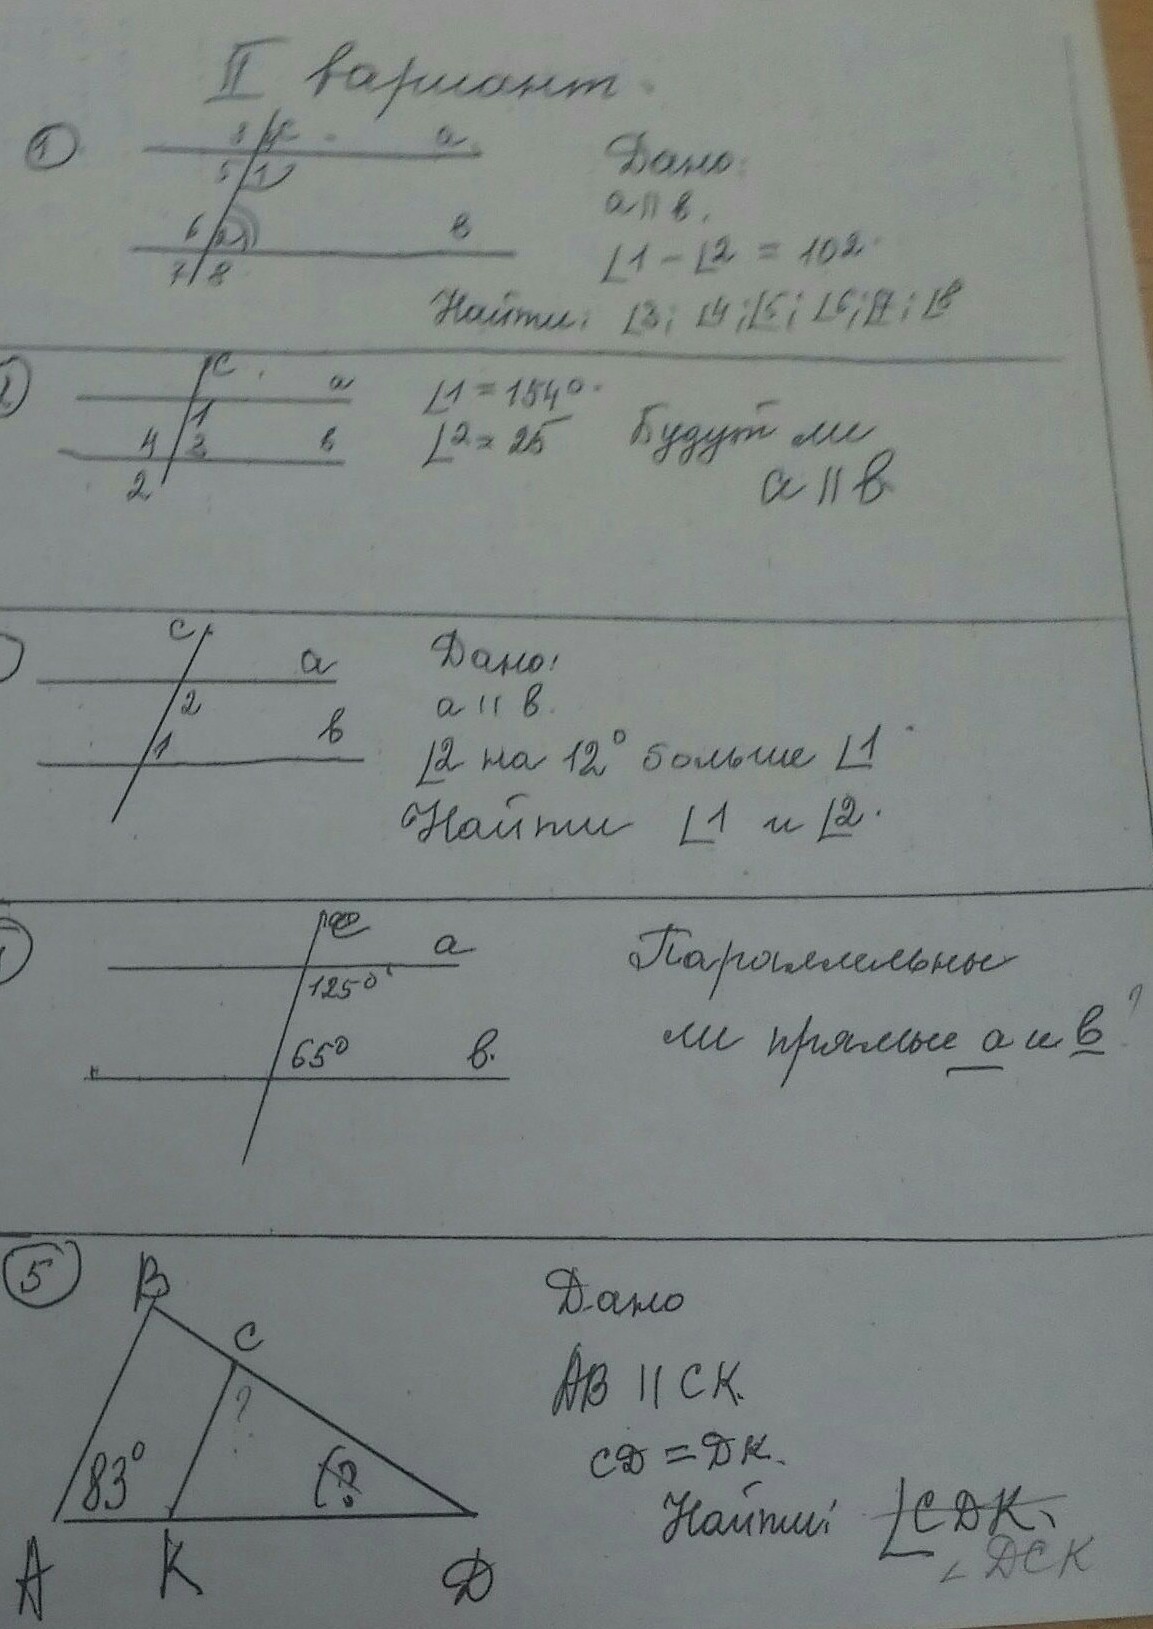 II вариант.
1
3 4 c a
5 1
6 2 в
7 8
Дано:
a || в.
∠1 - ∠2 = 102°
Найти: ∠3; ∠4; ∠5; ∠6; ∠7; ∠8
2
c a
1
4 3 в
2
∠1 = 154°
∠2 = 25
Будут ли
a || в
c a
2
1 в
Дано:
a || в.
∠2 на 12° больше ∠1
Найти ∠1 и ∠2.
a
125°
65° в.
Параллельны
ли прямые a и в?
5
B
C
?
83° ?
A K D
Дано
AB || CK.
CD = DK.
Найти: ∠CDK
∠DCK